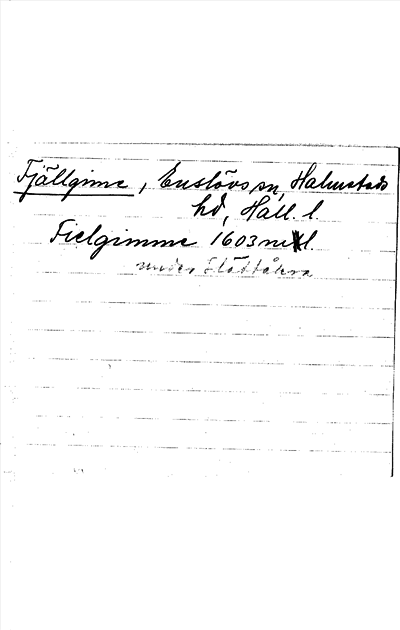 Fjällgime, Enslövs sn, Halmstads
hd, Hall. l.
Fielgimme 1603 mtl.
under Slättåkra